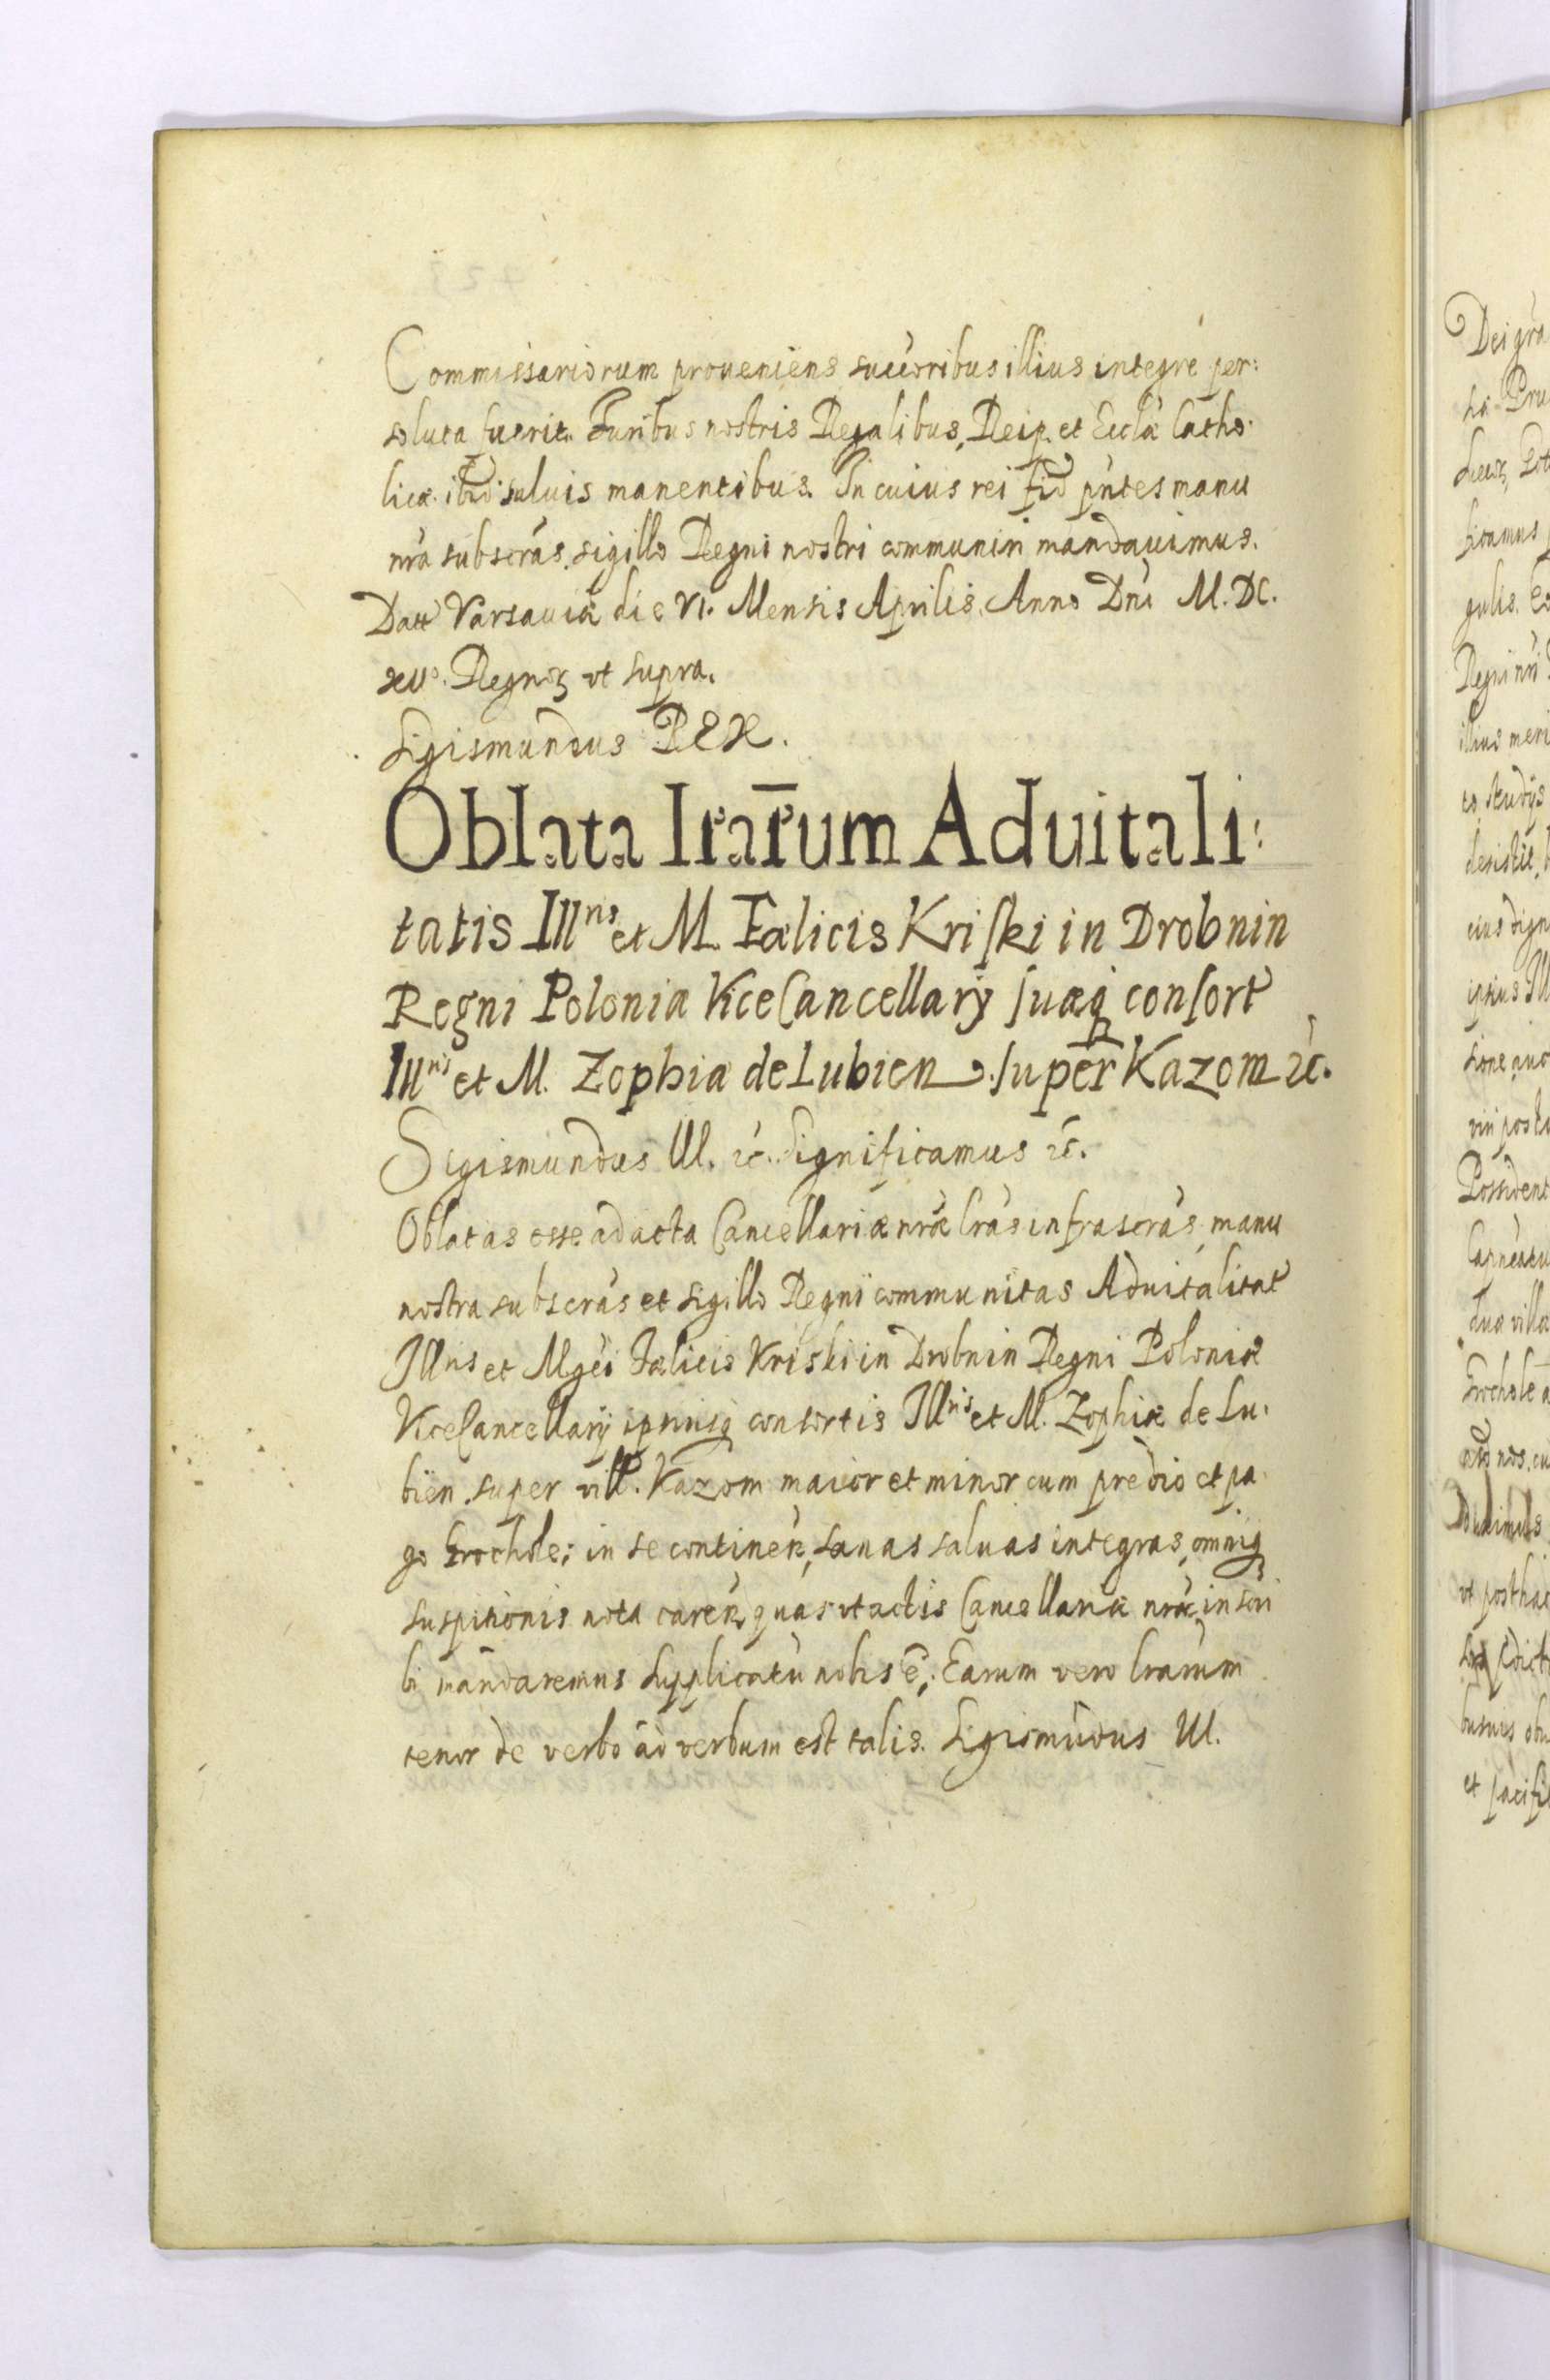 Commissariorum proueniens succoribus illius integre per:
soluta fuerit. Iuribus nostris Regalibus, Reip. et Eccla Catho.
licæ ibid saluis manentibus. In cuius rei fid pñtes manu
nrã subscrãs, sigillo Regni nostri communiri mandauimus.
Datt Varsauiæ die VI. Mensis Aprilis, Anno Dni M.DC.
xv°. Regnoꝝ vt supra.
Sigismundus REX.
Oblata Lrar̄um Aduitali:
tatis Illris et M. Fœlicis Kriski in Drobnin
Regni Poloniæ ViceCancellarÿ suæq consort
Illris et M. Zophiæ de Lubien. super Kazom ꝛc.
Sigismundus III. ꝛc. Significamus ꝛc.
Oblatas esse ad acta Cancellariæ nrã lrãs infrascrãs, manu
nostra subscrãs et sigillo Regni communitas Aduitalitat
Illris et Mgci Fælicis Kriski in Drobnin Regni Poloniæ
ViceCancellarÿ ipsiusq consortis Illris et M. Zophiæ de Lu.
bien. super vill. Kazom maior et minor cum predio et pa
go Grochole; in se contineñ, sanas saluas integras, omniq
suspitionis nota careñ, quas vt actis Cancellariæ nrã, inscri
bi mandaremus supplicatũ nobis ẽ, Earum vero lrarum
tenor de verbo ad verbum est talis. Sigismũdus III.